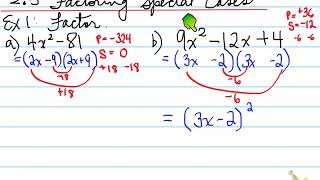 2.5 Factoring Special Cases
Ex 1: Factor.
a) 4x² - 81 P = -324 S = 0 +18 -18
= (2x - 9)(2x + 9)
-18
+18
b) 9x² - 12x + 4 P = +36 S = -12 -6 -6
= (3x - 2)(3x - 2)
-6
-6
= (3x - 2)²